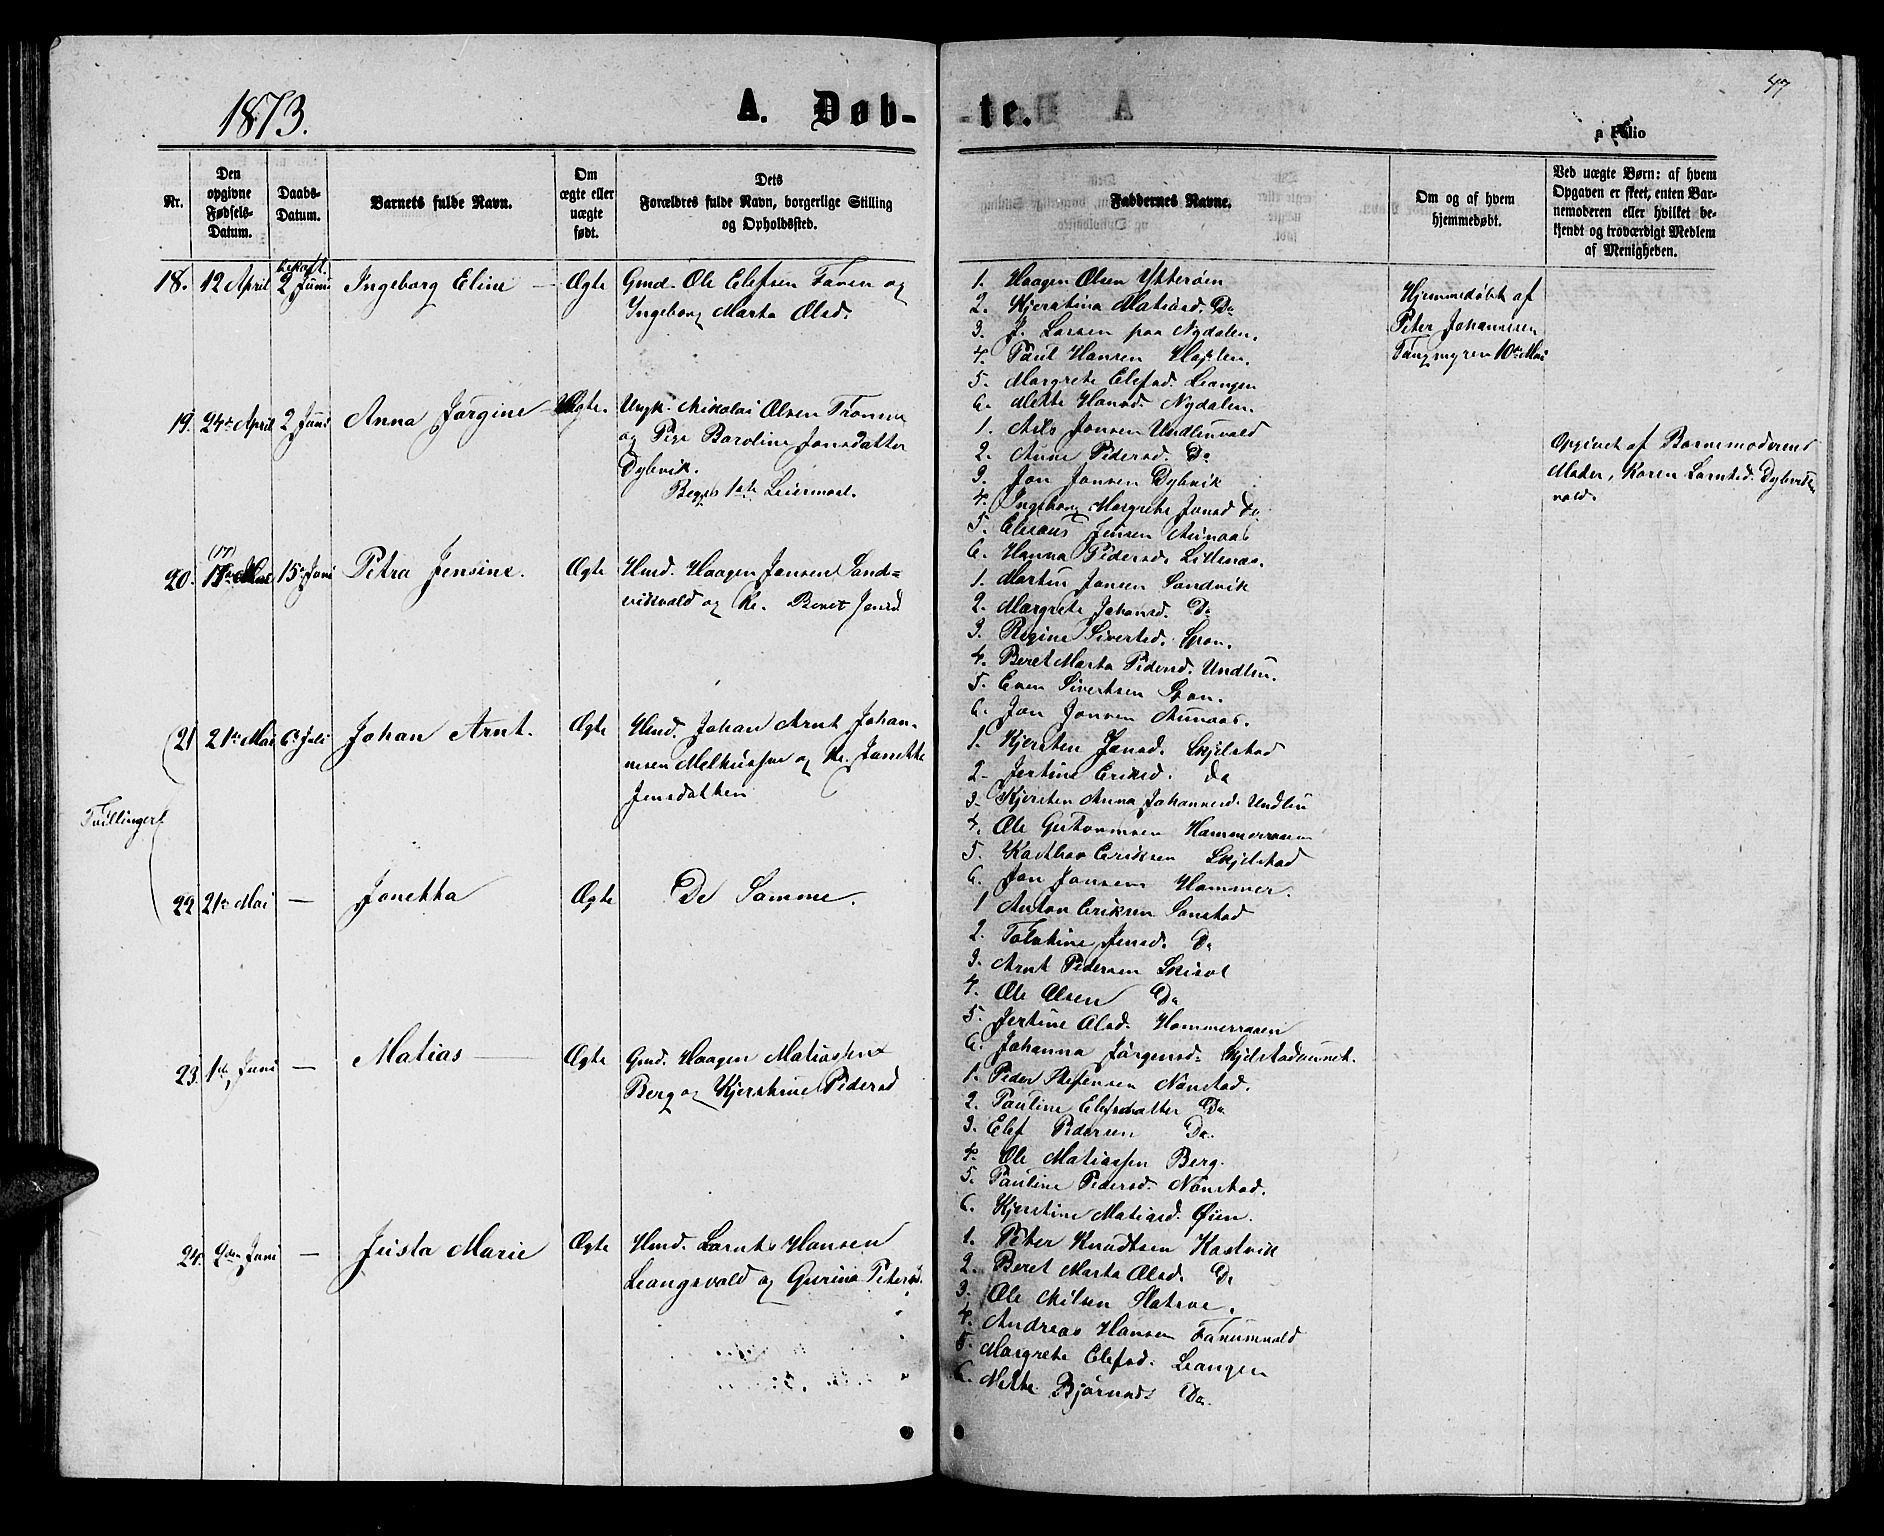 1873.
A. Døb-
-te.
47
a Folio
Nr.
Den opgivne Fødsels-Datum.
Daabs-Datum.
Barnets fulde Navn.
Om ægte eller uægte født.
Dets Forældres fulde Navn, borgerlige Stilling og Opholdssted.
Faddernes Navne.
Om og af hvem hjemmedøbt.
Ved uægte Børn: af hvem Opgaven er skeet, enten Barnemoderen eller hvilket bekjendt og troværdigt Medlem af Menigheden.
18. 12 April bekræft. 2 Juni Ingeborg Eline Ægte Gmd. Ole Elefsen Faren og
Ingeborg Marta Olsd.
1. Haagen Olsen Ytterøen
2. Kjerstina Matiasd. Do
3. J. Larsen paa Nydalen.
4. Paul Hansen Hojslen.
5. Margrete Elefsd. Leangen
6. Mette Hansd. Nydalen.
Hjemmedøbt af
Peter Johannesen
Tangmyren 10de Mai
19. 24de April 2 Juni Anna Jørgine Ægte. Ungk. Nikolai Olsen Tromsø
og Pige Baroline Jonsdatter
Dybvik.
Begges 1ste Leiermaal.
1. Nils Jonsen Undlinvald
2. Anne Pedersd. Do
3. Jon Jonsen Dybvik
4. Ingeborg Margrete Jonsd Do
5. Eliseus Jensen Aunaas
6. Hanna Pedersd. Lillenas.
Opgivet af Barnemoderens
Moder, Karen Larntsd. Dybviks
vald.
20. (17) 17de Mai 15de Juni Petra Jensine. Ægte Hmd. Haagen Jansen Sand=
vikvald og K. Beret Jonsd
1. Martin Jansen Sandvik
2. Margrete Johansd. Do
3. Regine Sivertsd. Gran.
4. Beret Marta Pedersd. Undlin.
5. Even Sivertsen Gran.
6. Jon Jonsen Aunaas.
21 21de Mai 6te Juli Johan Arnt. Ægte Hmd. Johan Arnt Johan-
nesen Melhusfne og K. Janetta
Jensdatter
1. Kjersten Jonsd. Skjelstad
2. Jertine Eriksd. Do
3. Kjersten Anna Johannesd. Undlin
4. Ole Gustavsen Hammerraaen
5. Kastbar Eriksen Skjelstad
6. Jon Jonsen Hammer.
Tvillinger
22 21de Mai — Janetta Ægte De Samme.
1 Anton Eriksen Sonstad
2. Tolstine Jensd. Do
3. Arnt Pedersen Skisol
4. Ole Olsen Do
5. Jertine Olsd. Hammerraaen
6. Johanna Jørgensd. Skjelstadaunet.
23. 1ste Juni — Matias Ægte Gmd. Haagen Matiassen
Berg og Kjerstine Pedersd
1. Peder Steffensen Nonstad.
2. Pauline Elefsdatter Do
3. Elef Pedersen Do.
4. Ole Matiassen Berg.
5. Pauline Pedersd. Nonstad.
6. Kjerstine Matiasd. Øien.
24. 9den Juni — Justa Marie Ægte Hmd. Larnts Hansen
Leangsvald og Gurina Petersd.
1. Peter Knudtsen Kastvik
2. Beret Marta Olsd. Do
3. Ole Nilsen Hatvoe.
4. Andreas Hansen Farumvald
5. Margrete Elefsd. Leangen
6. Mette Bjørnsd Do.